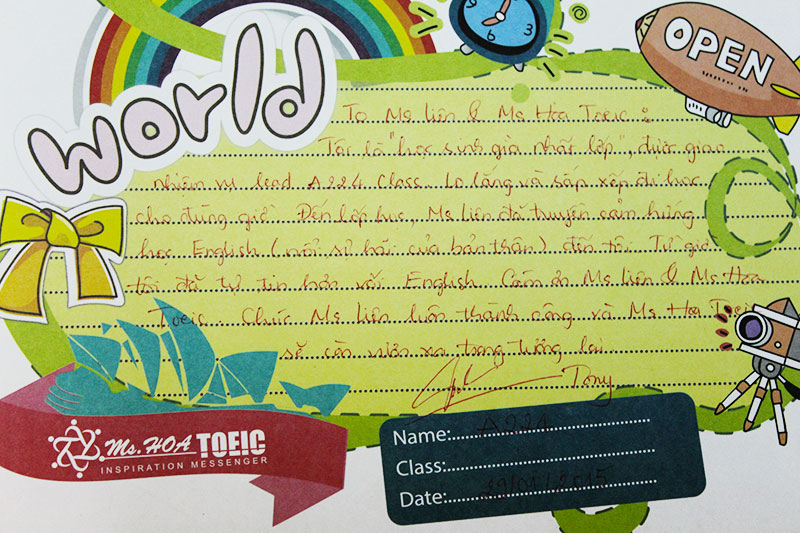 world
OPEN
To Ms Liên & Ms Hoa Toeic :
Tôi là "học sinh già nhất lớp", được giao
nhiệm vụ lead A224 Class. Lo lắng và sắp xếp đi học
cho đúng giờ. Đến lớp học, Ms Liên đã truyền cảm hứng
học English (nỗi sợ hãi của bản thân) đến tôi. Từ giờ
tôi đã tự tin hơn với English. Cảm ơn Ms Liên & Ms Hoa
Toeic. Chúc Ms Liên luôn thành công và Ms Hoa Toeic
sẽ còn vươn xa trong tương lai.
Tony
Ms. HOA TOEIC
INSPIRATION MESSENGER
Name: A224
Class:
Date: /01/2015